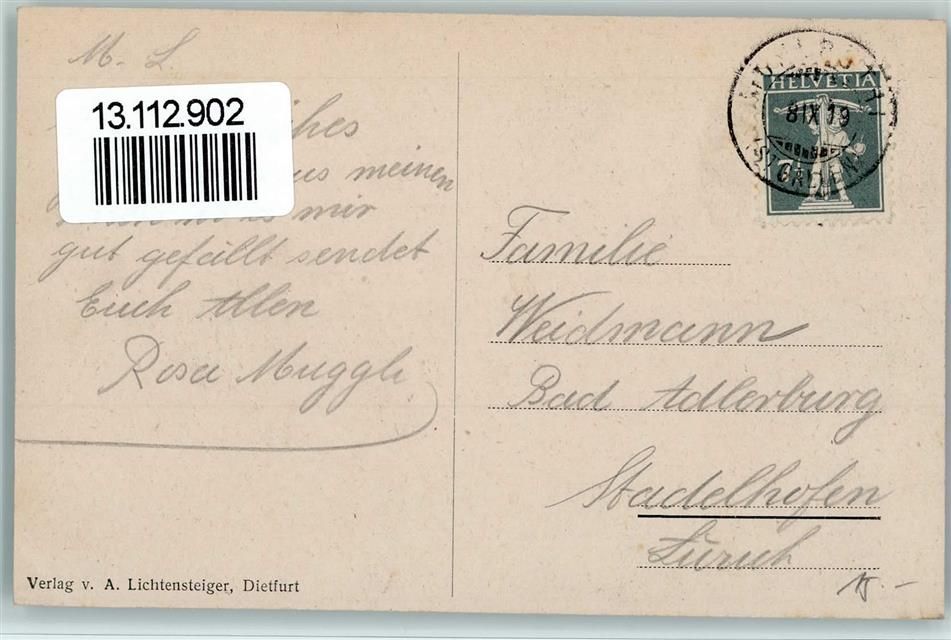 M. L.
13.112.902
meinen
mir
gut gefällt sendet
Euch Allen
Rosa Muggli
Verlag v. A. Lichtensteiger, Dietfurt
HELVETIA
8 IX 19
(ST. GALLEN)
7½
Familie
Weidmann
Bad Adlerburg
Stadelhofen
Zürich
15.-